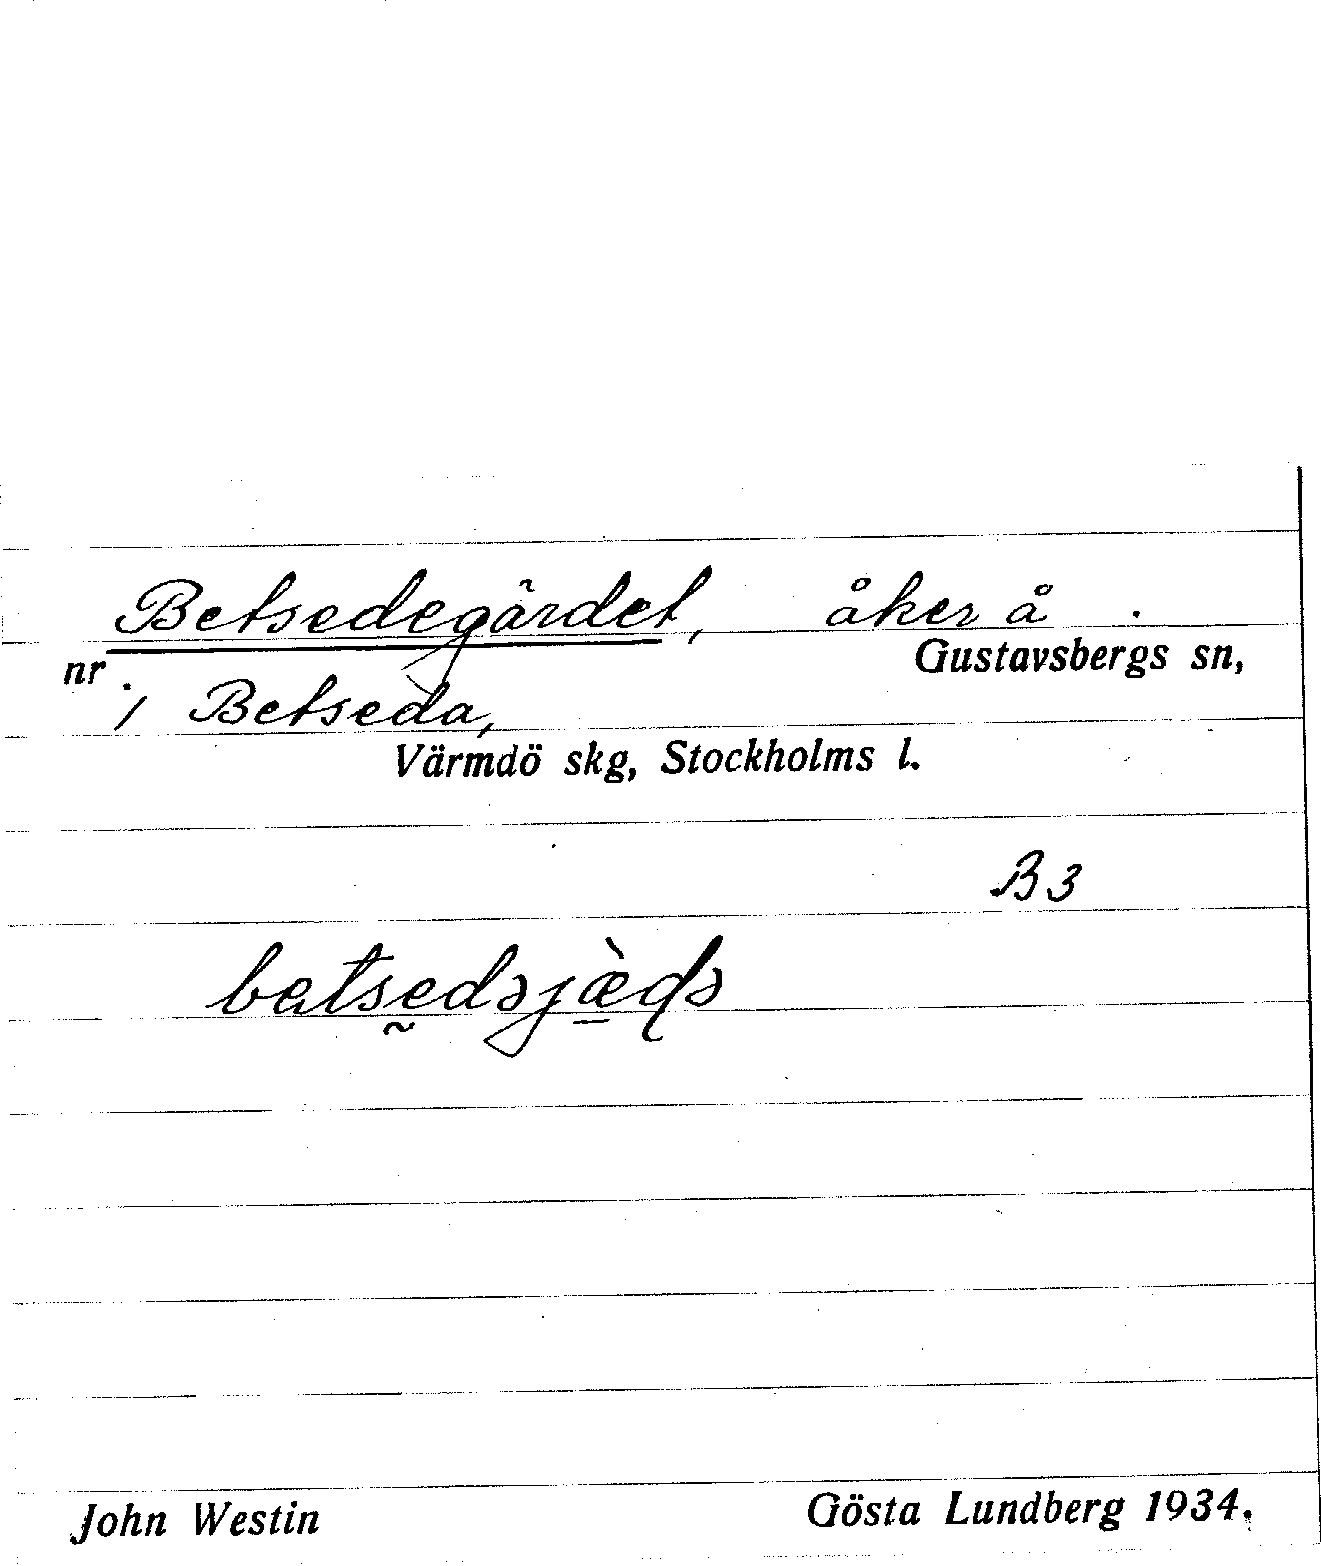 Betsedegärdet, åker å
nr Gustavsbergs sn,
i Betseda,
Värmdö skg, Stockholms l.
B3
Gösta Lundberg 1934.
John Westin